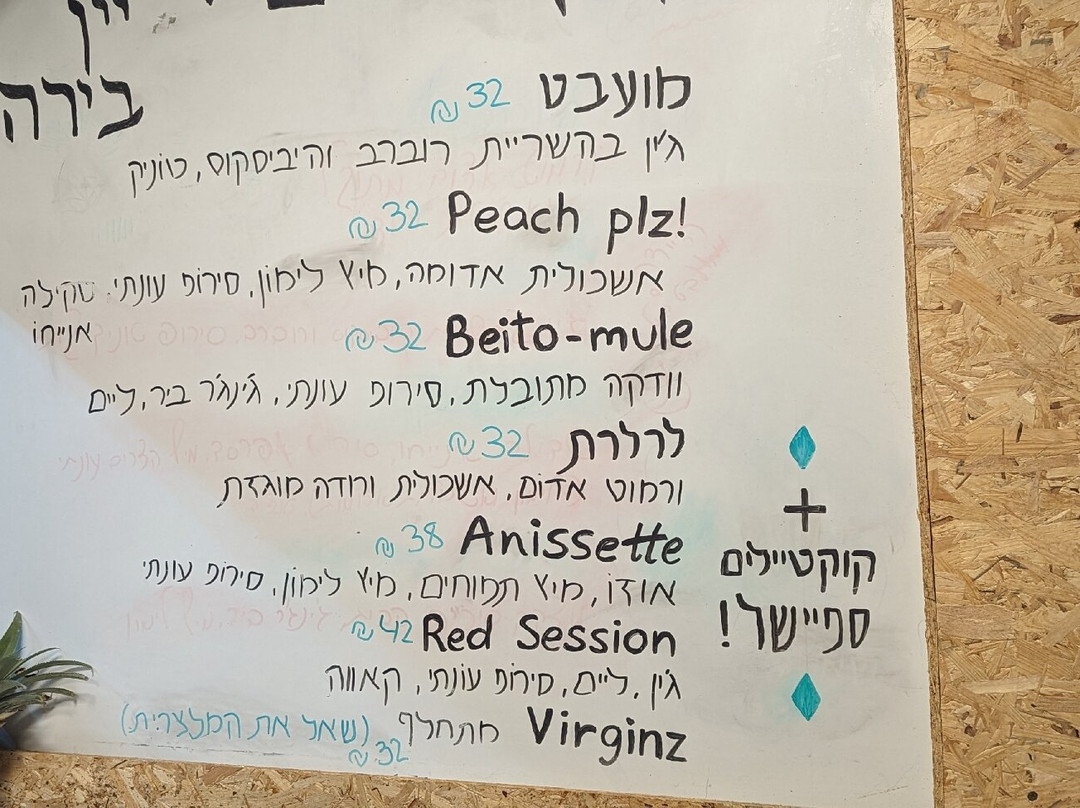 יין
בירה
מועבט 32 ₪
ג'ין בהשריית רוברב והיביסקוס, טוניק
Peach plz! 32 ₪
אשכולית אדומה, מיץ לימון, סירופ עונתי, טקילה
אנייחו
Beito-mule 32 ₪
וודקה מתובלת, סירופ עונתי, ג'ינג'ר ביר, ליים
לרלרת 32 ₪
ורמוט אדום, אשכולית ורודה מוגזת
Anissette 38 ₪
אוזו, מיץ תפוחים, מיץ לימון, סירופ עונתי
Red Session 42 ₪
ג'ין, ליים, סירופ עונתי, קאווה
Virginz מתחלף (שאל את המלצרית)
32 ₪
+
קוקטיילים
ספיישל!